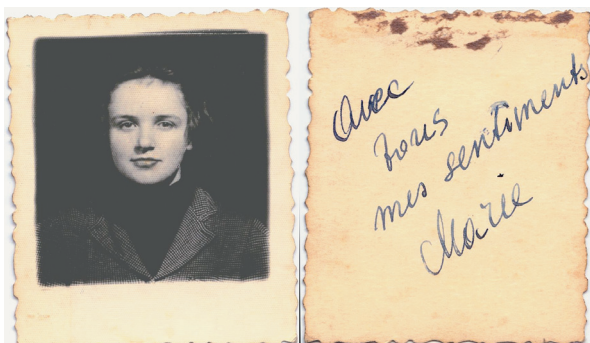 Avec
tous
mes sentiments
Marie